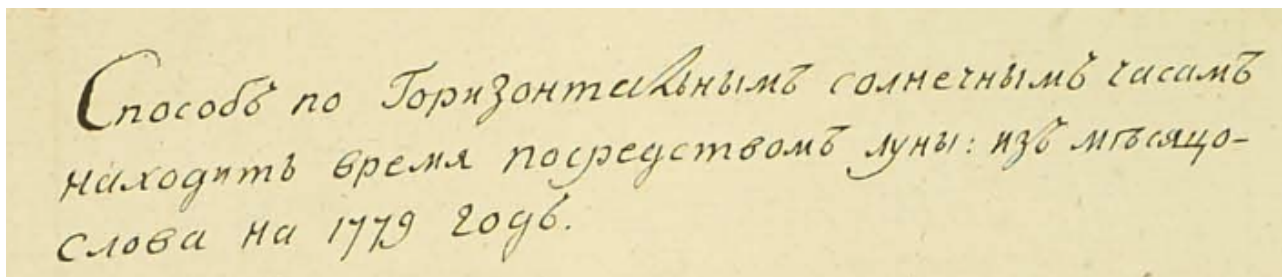 Способъ по Горизонтальнымъ солнечнымъ часамъ
находить время посредствомъ луны: изъ мѣсяцо-
слова на 1779 годъ.